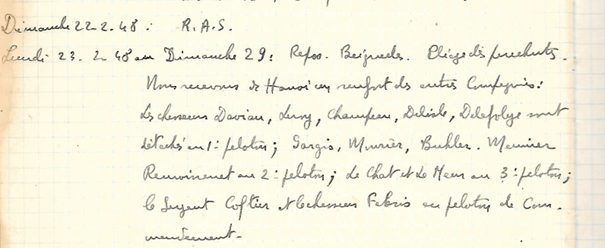 Dimanche 22-2-48 : R.A.S.
Lundi 23-2-48 au Dimanche 29 : Repos. Baignades. Pliage des parachutes.
Nous recevons de Hanoi en renfort des autres Compagnies :
Les chasseurs Davian, Leroy, Champeau, Delisle, Delafolye sont
détachés au 1° peloton ; Gargis, Mourier, Buhler. Meunier
au 2° peloton ; Le Chat et Le Meur au 3° peloton ;
le Sergent Coftier et le chasseur Fabris au peloton de Com-
mandement.